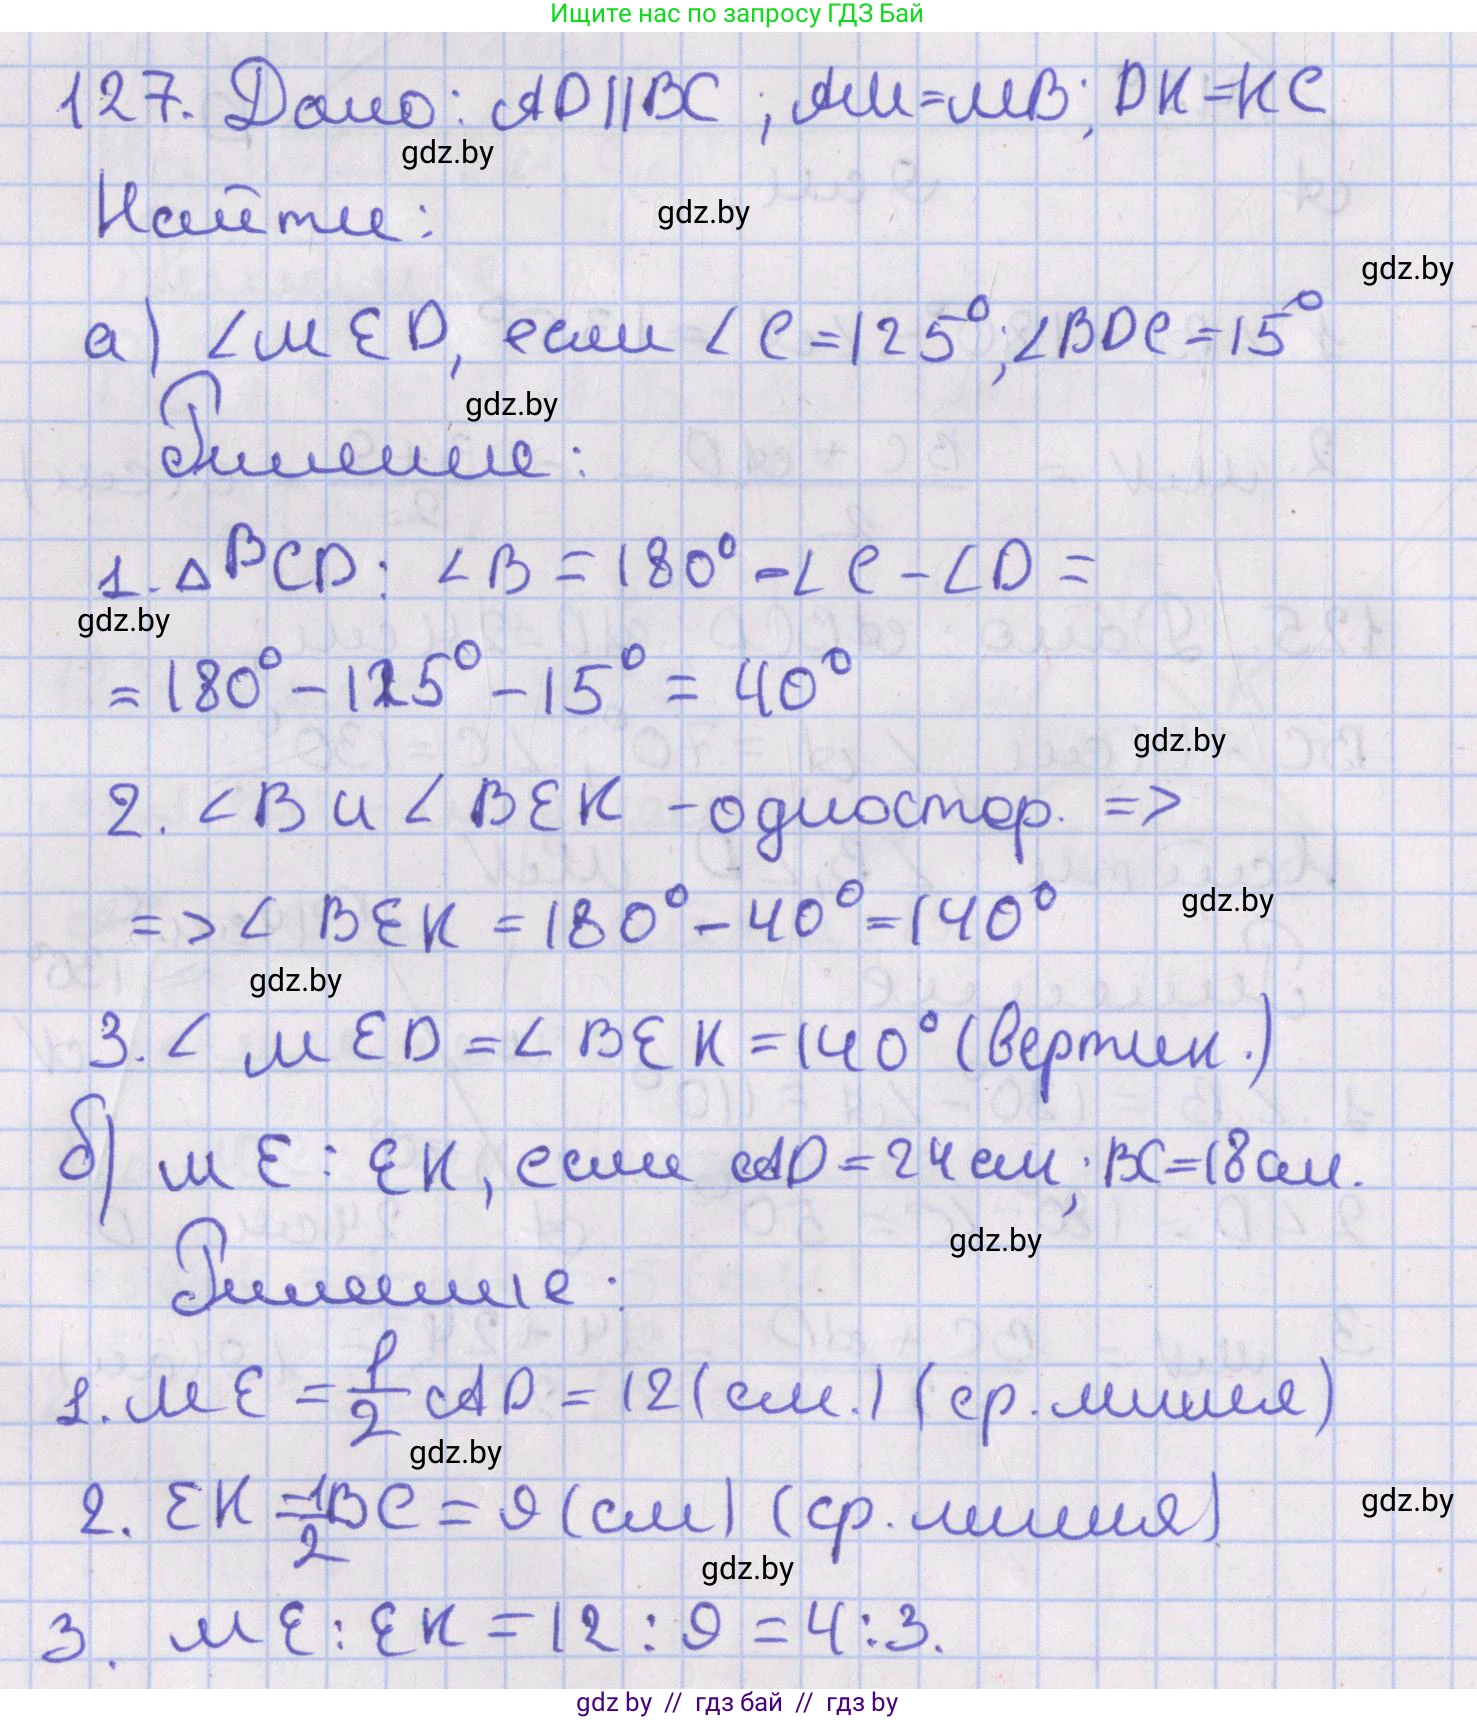 Ищите нас по запросу ГДЗ Бай
127. Дано: AD||BC; AM=MB; DK=KC
gdz.by
Найти:
gdz.by
gdz.by
а) ∠MED, если ∠C=125°; ∠BDC=15°
gdz.by
Решение:
1. △BCD: ∠B = 180° - ∠C - ∠D =
gdz.by
= 180° - 125° - 15° = 40°
gdz.by
2. ∠B и ∠BEK - одностор. =>
=> ∠BEK = 180° - 40° = 140°
gdz.by
gdz.by
3. ∠MED = ∠BEK = 140° (вертик.)
б) ME : EK, если AD = 24 см; BC = 18 см.
gdz.by
Решение:
1. ME = 1/2 AD = 12 (см.) (ср. линия)
gdz.by
2. EK = 1/2 BC = 9 (см) (ср. линия)
gdz.by
gdz.by
3. ME : EK = 12 : 9 = 4:3.
gdz by // гдз бай // гдз by